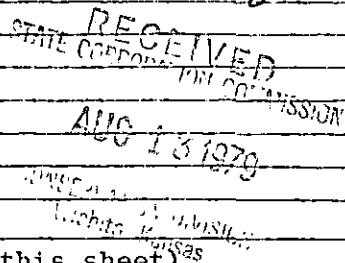 RECEIVED
STATE CORPORATION COMMISSION
AUG 13 1979
Wichita, Kansas
this sheet)